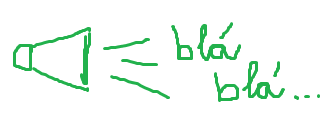 blá
blá...